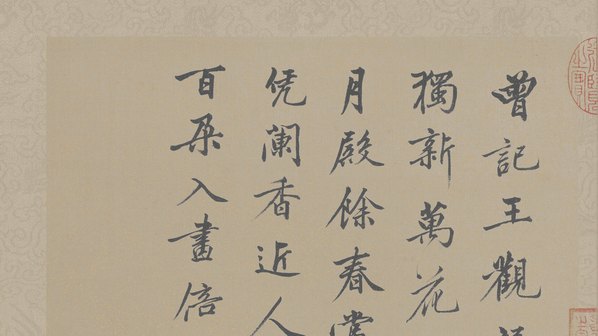 曾記王觀
獨新萬花
月殿餘春當
凭闌香近人
百朶入畫倍